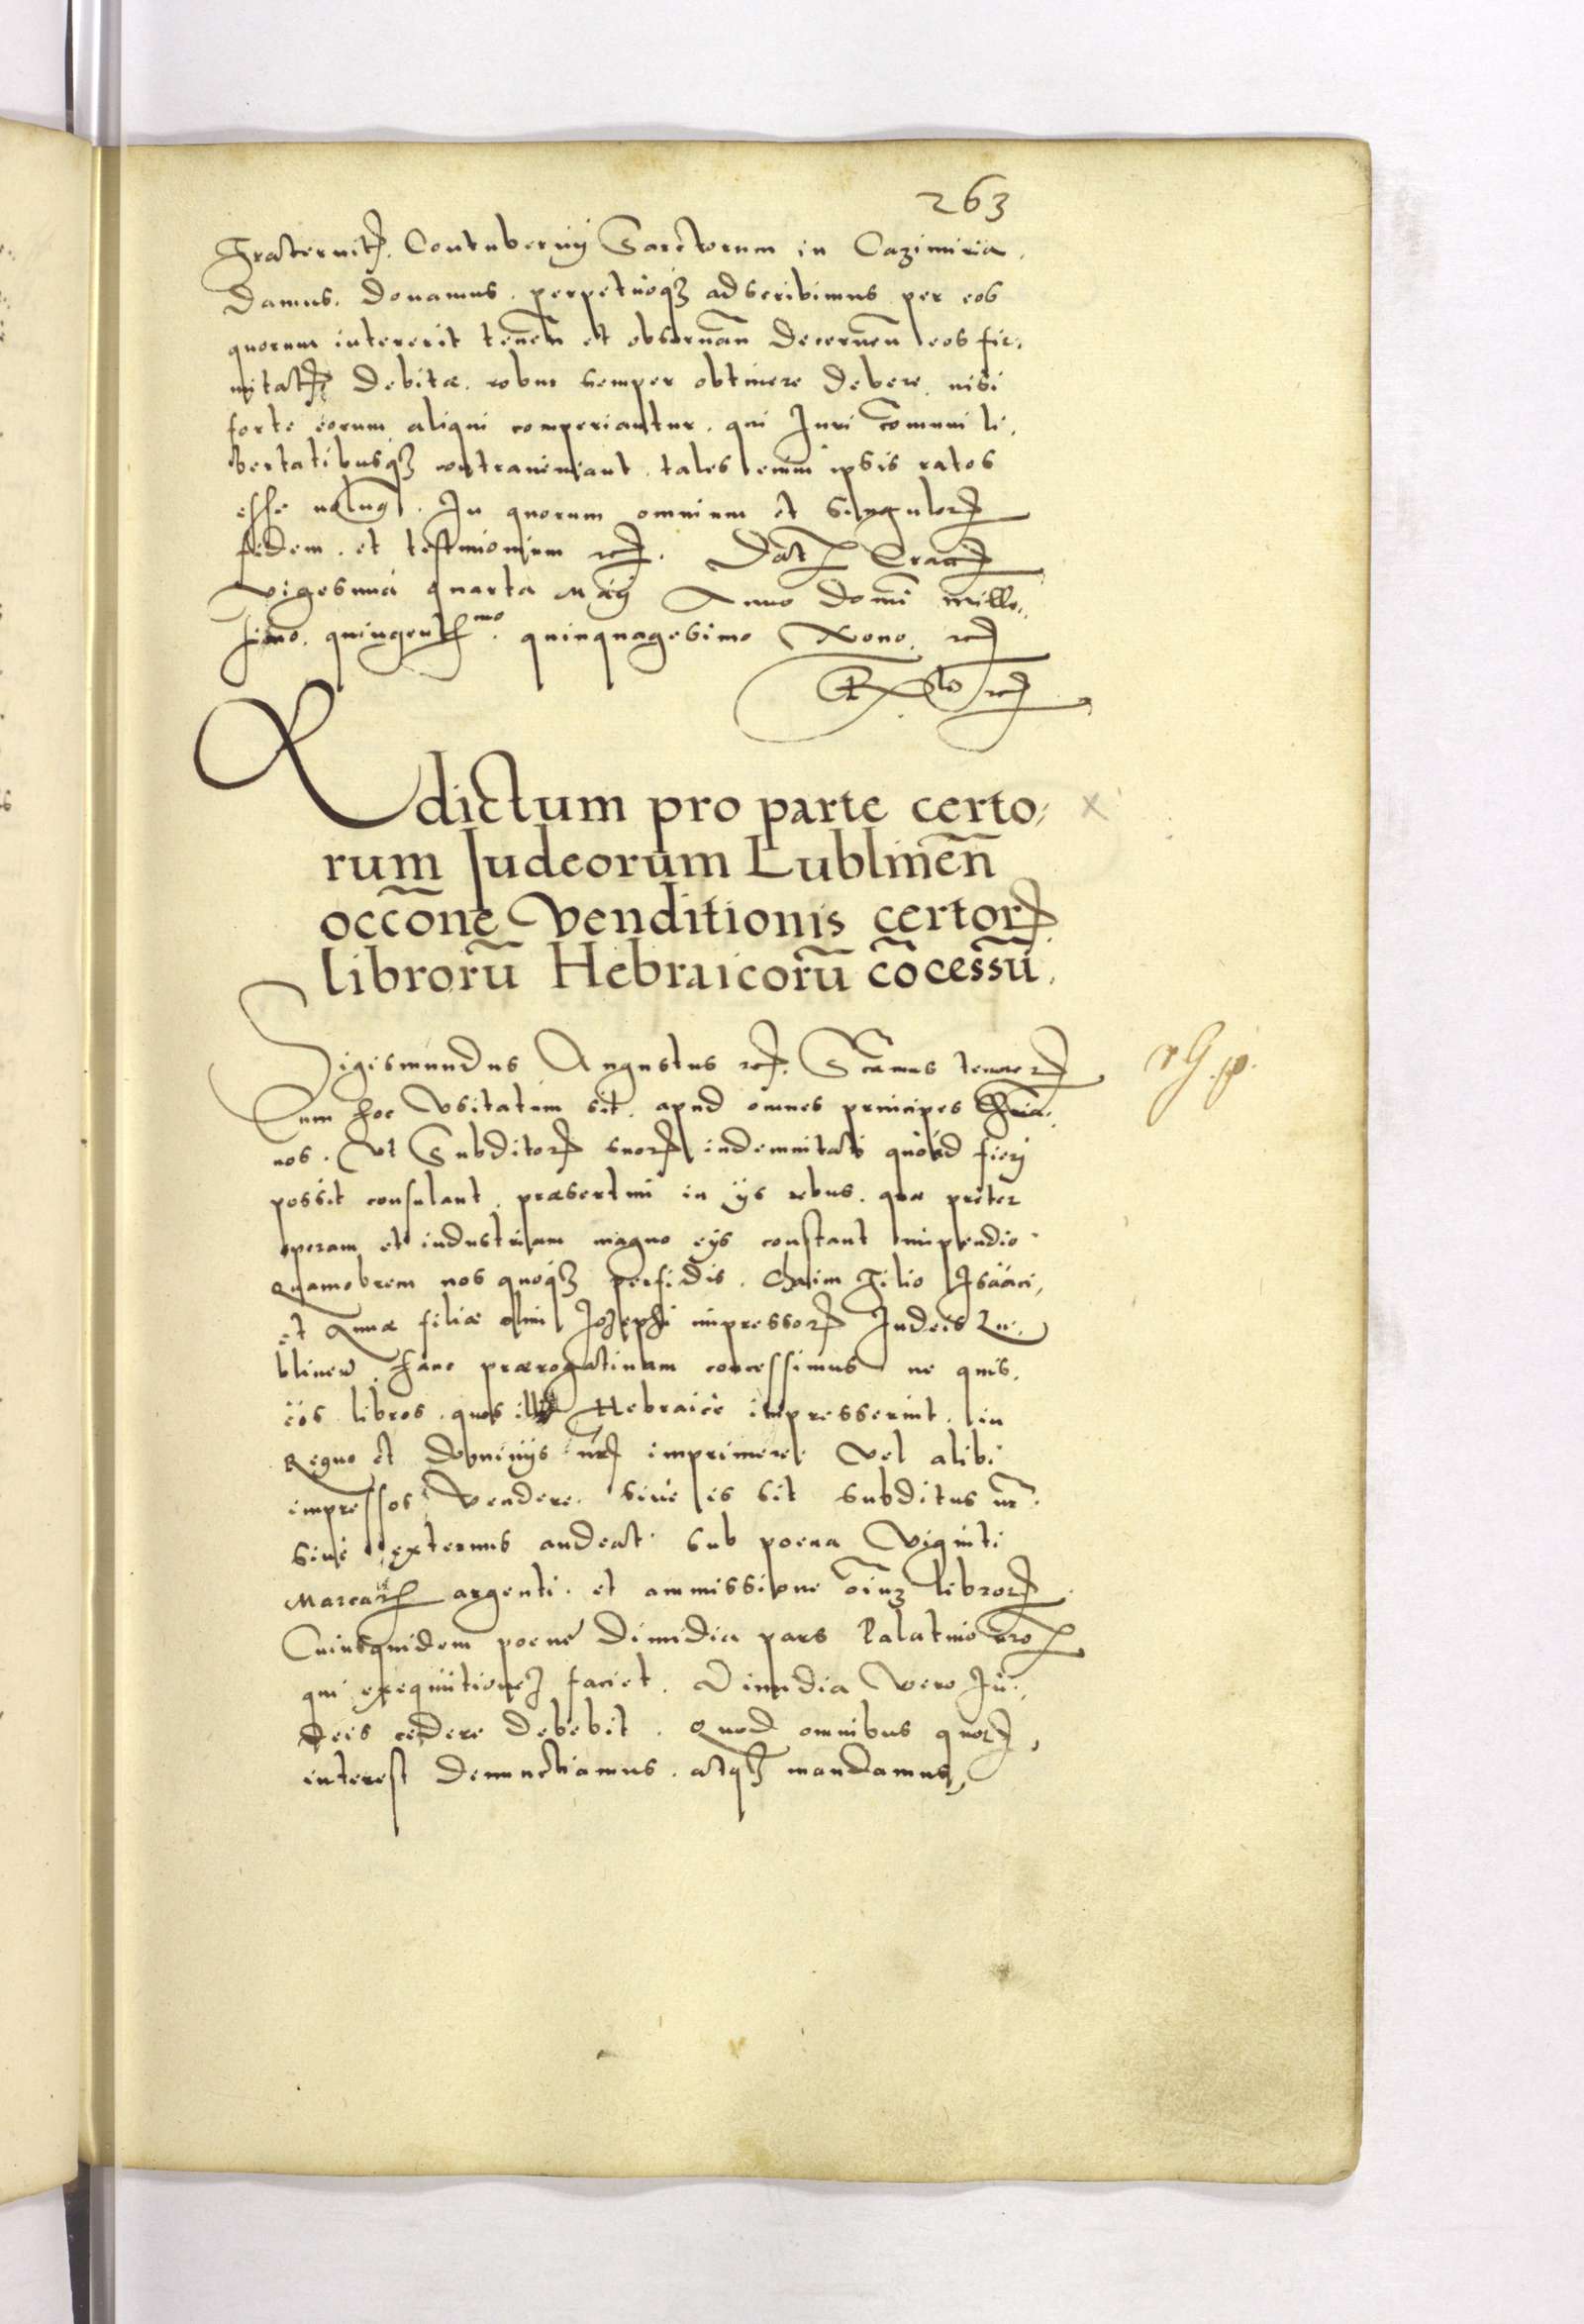 263
Fraternit. Contubernij Sartorum in Cazimiria.
damus. donamus. perpetuoq3 adscribimus per eos
quorum intererit teneñ et obseruañ decerneñ eos fir.
mitatis debitæ. robur semper obtinere debere. nisi
forte eorum aliqui comperiantur. qui Iuri cõmuni li.
bertatibusq3 contraueniant. tales enim ipsis ratos
esse. In quorum omnium et singulor
fidem. et testimonium etc. Dat Crac
vigesima quarta Maij Anno domi mille.
simo. quingentmo. quinquagesimo Nono. etc
Edictum pro parte certo,
rum Judeorum Lublineñ
occõne Venditionis certor
librorũ Hebraicorũ cõcessũ.
Sigismundus Augustus etc. Scãmus tenore etc
Cum hoc Vsitatum sit. apud omnes principes Chria.
nos. Vt Subditor suor indemnitati quoad fierj
possit consulant. præsertim in ijs rebus. quæ preter
operam et industriam magno eijs constant impendio.
Quamobrem nos quoq3 perfidis. Chaim Filio Isaaci,
et Annæ filiæ olim Josephi impressor Judeis Lu.
blineñ. hanc prærogatiuam concessimus ne quis.
eos libros. quos illi Hebraice impresserint. in
Regno et dominijs nr̃is imprimere. Vel alibi
impressos Vendere. siue is sit subditus nr̃.
siue externus audeat. sub poena Viginti
Marcar argenti. et ammissione oĩu3 libror
Cuiusquidem poene dimidia pars Palatino nro
qui exequutione3 faciet. Dimidia Vero Ju.
deis cedere debebit. Quod omnibus quor,
interest denunctiamus. atq3 mandamus,